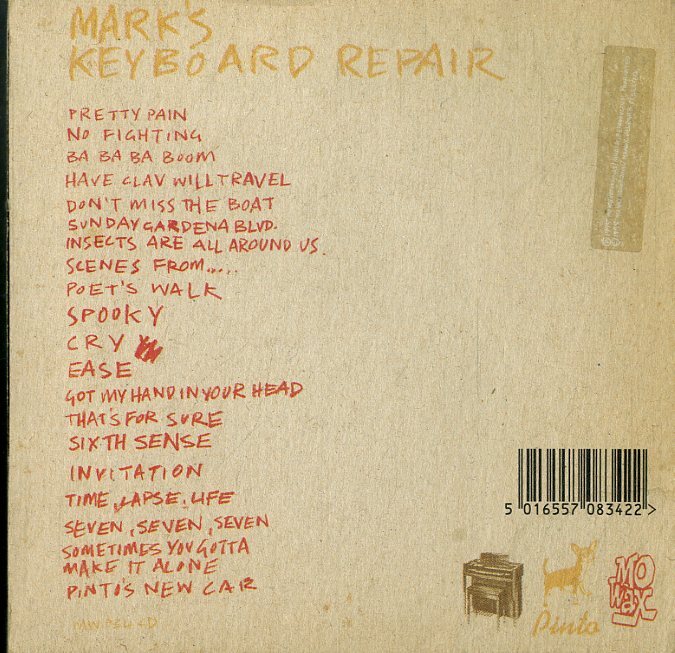 MARK'S
KEYBOARD REPAIR
PRETTY PAIN
NO FIGHTING
BA BA BA BOOM
HAVE CLAV WILL TRAVEL
DON'T MISS THE BOAT
SUNDAY GARDENA BLVD.
INSECTS ARE ALL AROUND US.
SCENES FROM.....
POET'S WALK
SPOOKY
CRY
EASE
GOT MY HAND IN YOUR HEAD
THAT'S FOR SURE
SIXTH SENSE
INVITATION
TIME, LAPSE, LIFE
SEVEN, SEVEN, SEVEN
SOMETIMES YOU GOTTA
MAKE IT ALONE
PINTO'S NEW CAR
5 016557 083422 >
Pinto
MO
WAX